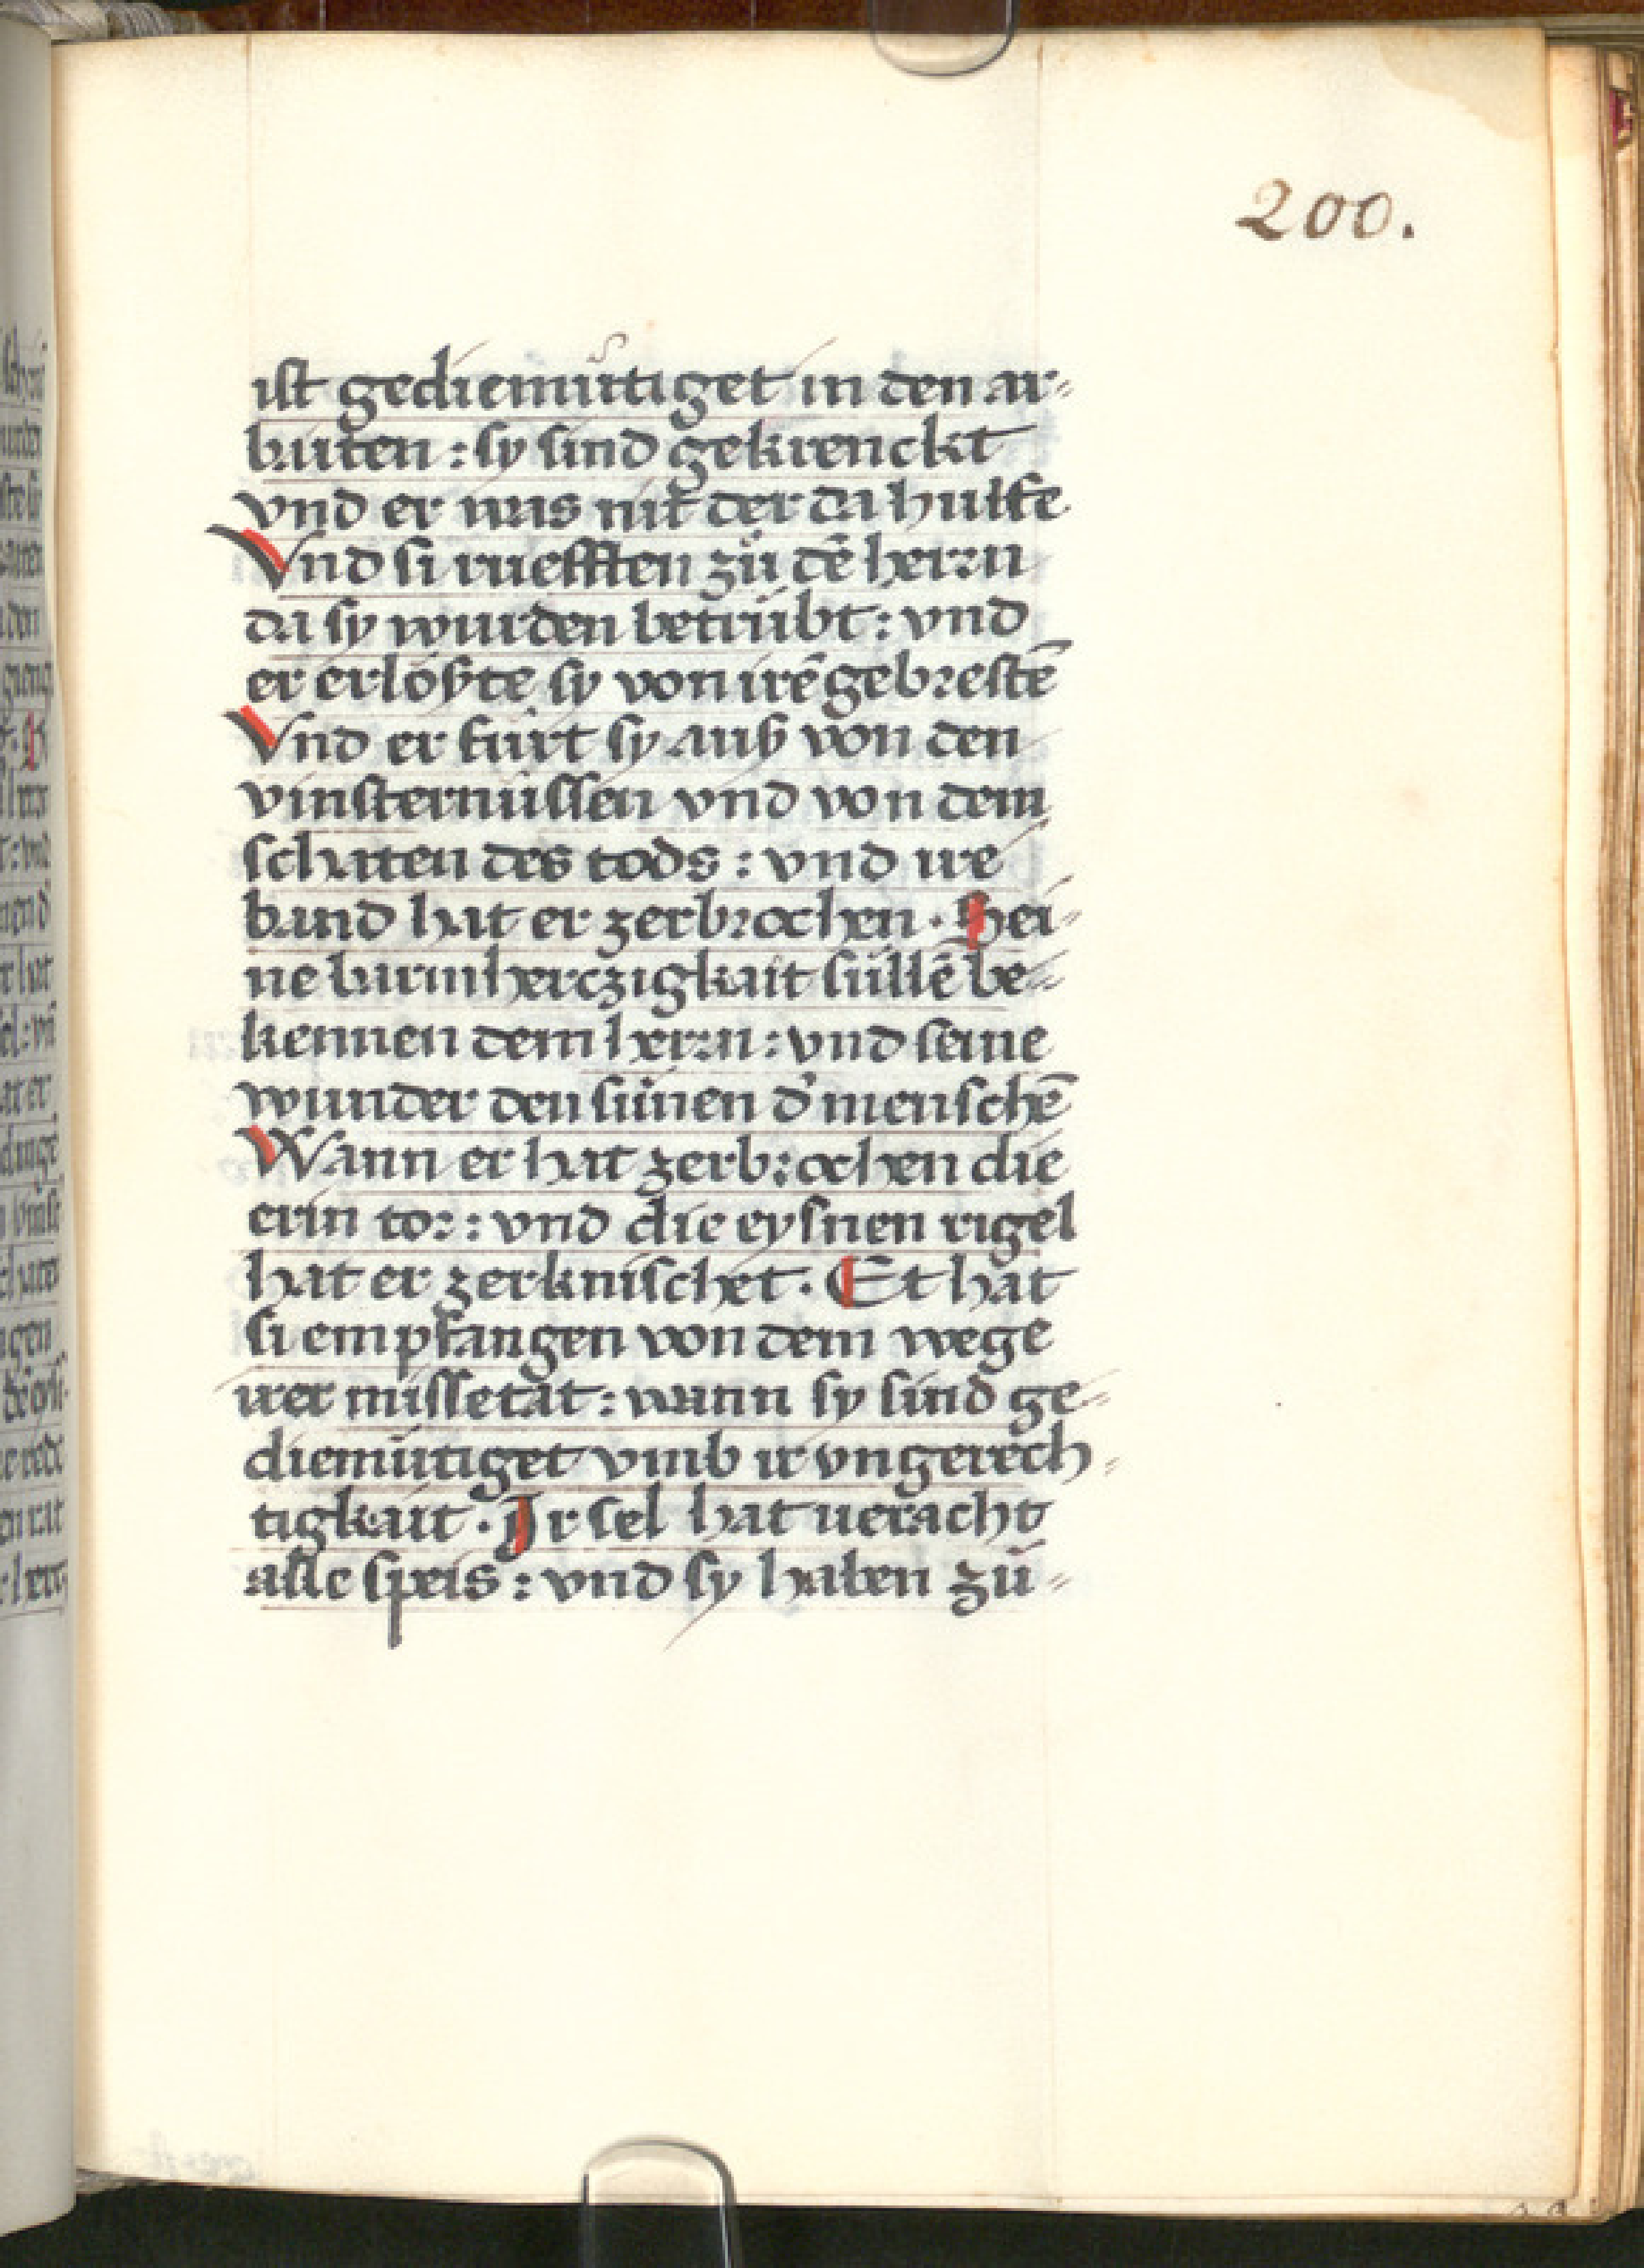 200.
ist gediemütiget in den ar⸗
baiten : sy sind gekrenckt
vnd er was nit der da hulfe
Vnd si ruefften zů dē herrn
da sy wurden betrübt : vnd
er erlößte sy von irē gebrestē
Vnd er fürt sy auß von den
vinsternüssen vnd von dem
schaten des tods : vnd ire
band hat er zerbrochen · Sei⸗
ne barmherczigkait süllē be⸗
kennen dem herrn : vnd seine
wunder den sünen d' menschē
Wann er hat zerbrochen die
erin tor : vnd die eysnen rigel
hat er zerknischet · Et hat
si empfangen von dem wege
irer missetat : wann sy sind ge⸗
diemütiget vmb ir vngerech⸗
tigkait · Ir sel hat veracht
alle speis : vnd sy haben zů⸗